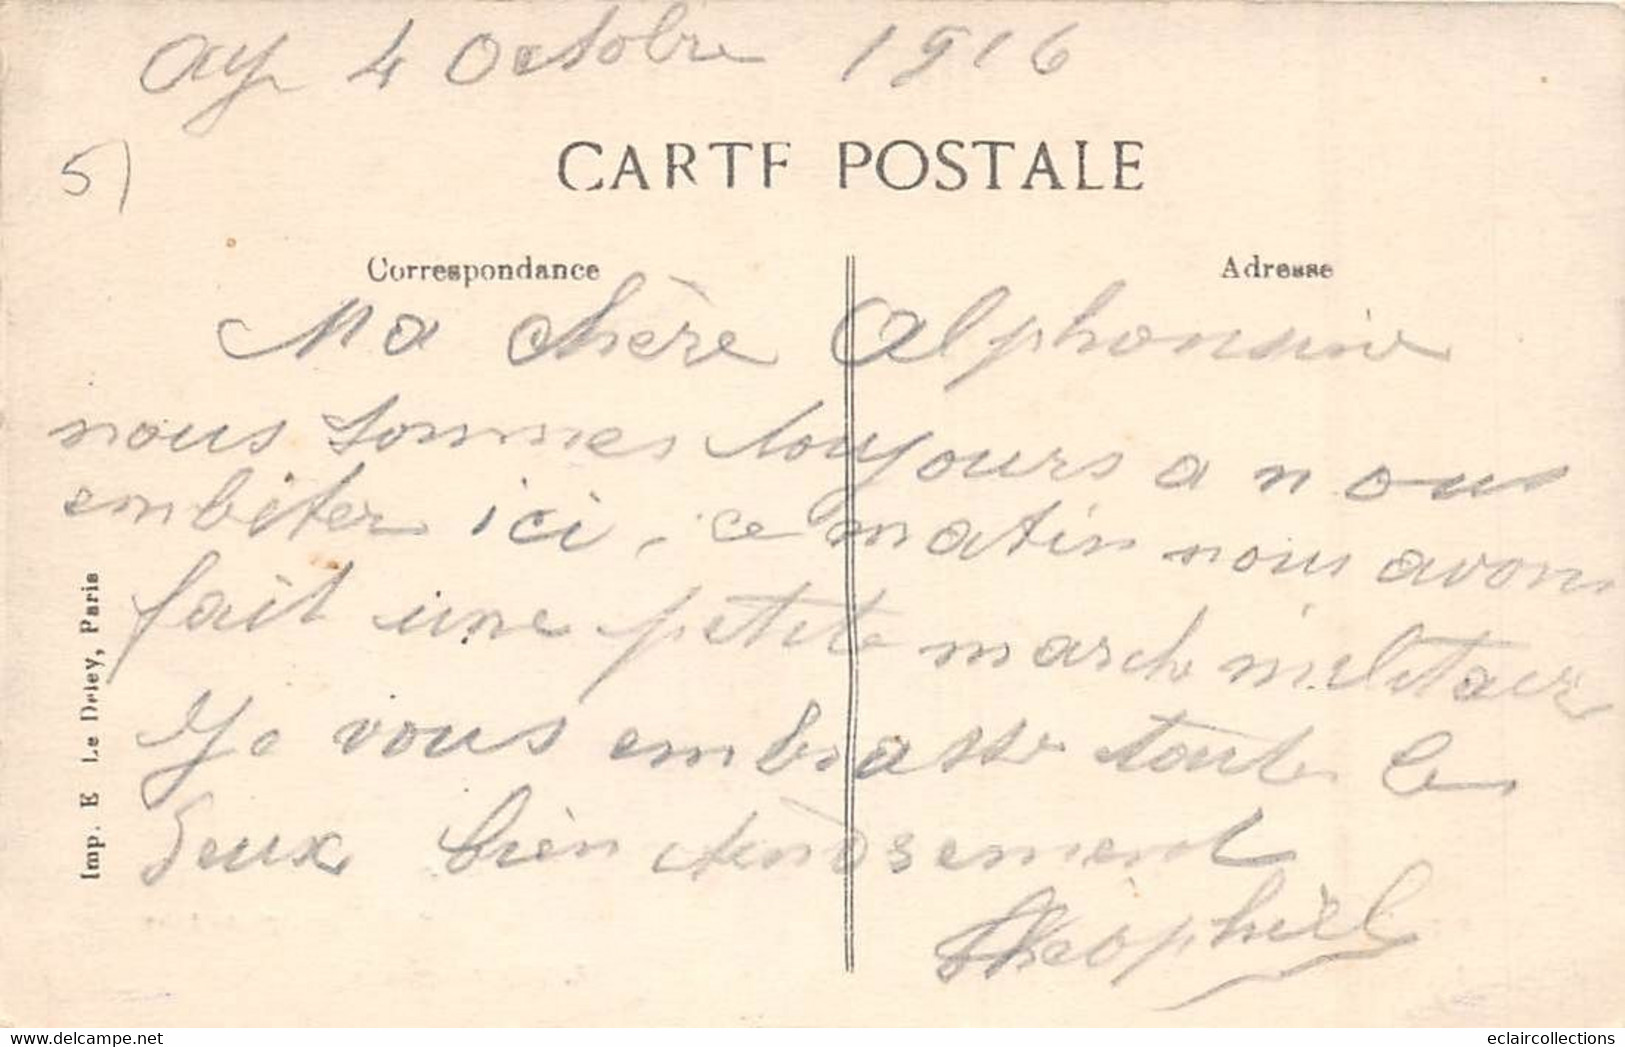 ay 4 Octobre 1916
51
CARTE POSTALE
Correspondance
Adresse
Ma chère Alphonsine
nous sommes toujours a nous
embêter ici, ce matin nous avons
fait une petite marche militaire
Je vous embrasse toute les
deux bien tendrement
Théophiel
Imp. E Le Deley, Paris
eclaircollections